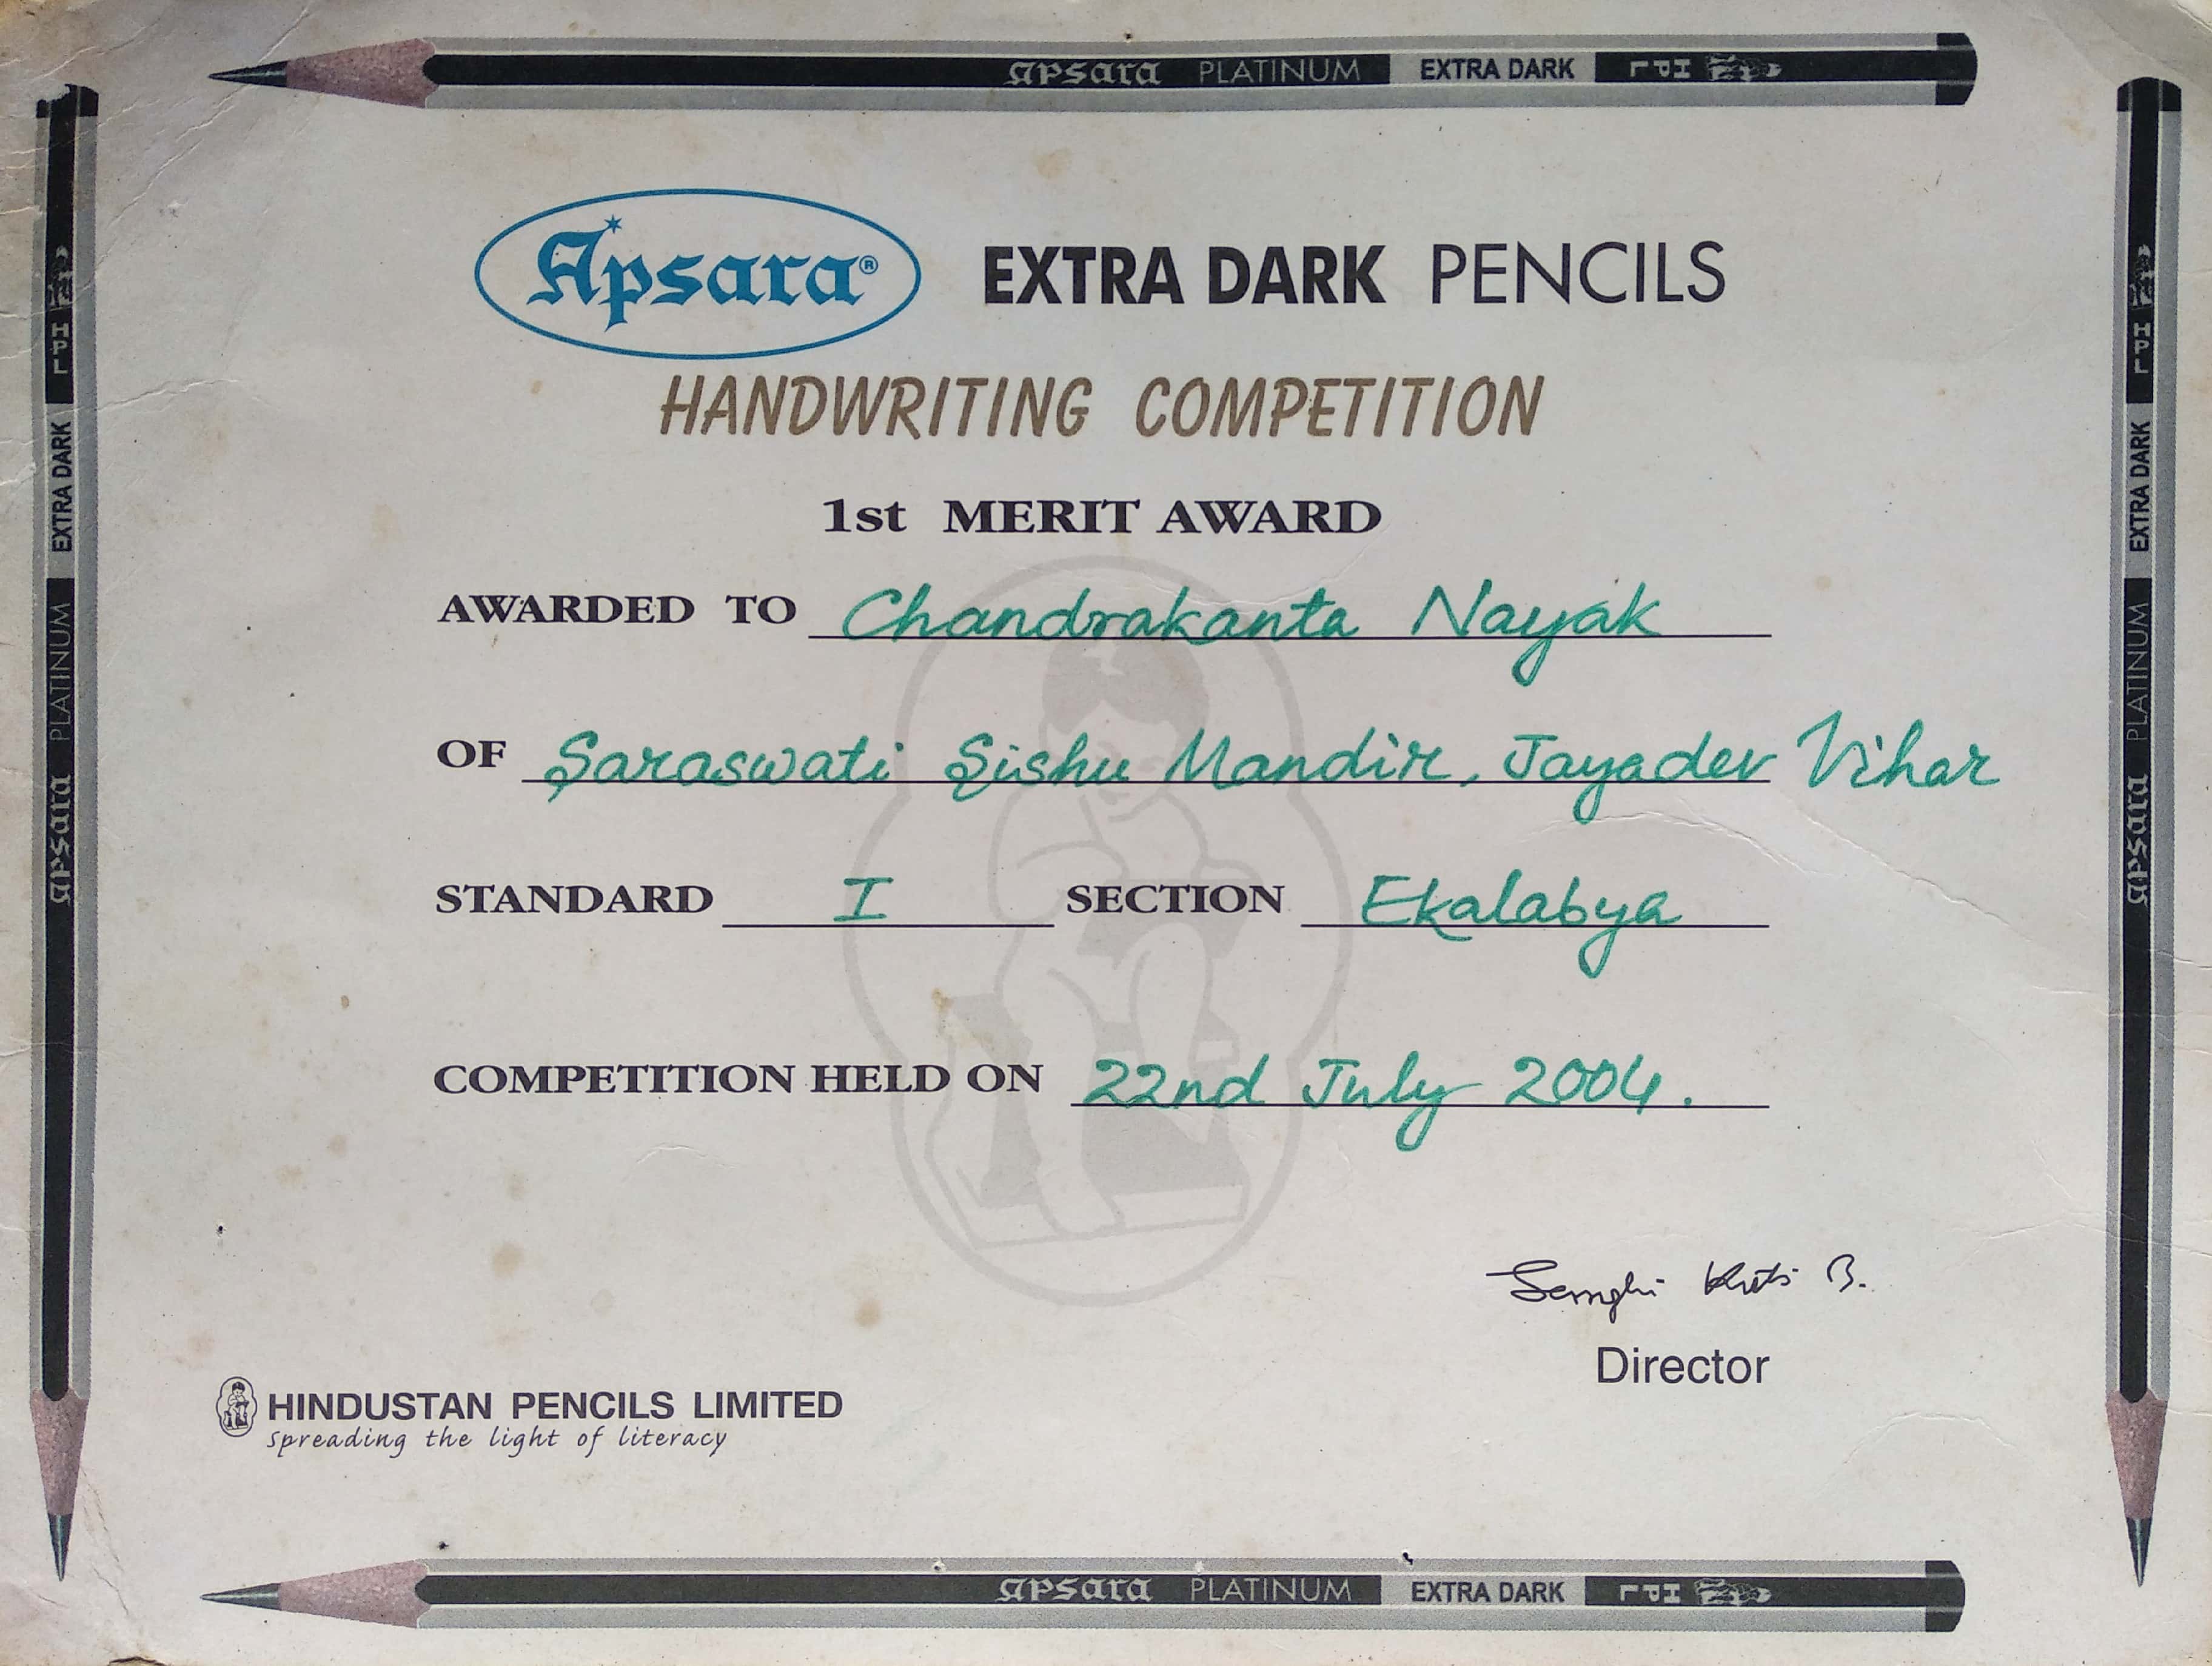 apsara PLATINUM EXTRA DARK HPL
apsara PLATINUM EXTRA DARK HPL
Apsara® EXTRA DARK PENCILS
HANDWRITING COMPETITION
1st MERIT AWARD
AWARDED TO Chandrakanta Nayak
OF Saraswati Sishu Mandir, Jayadev Vihar
STANDARD I SECTION Ekalabya
COMPETITION HELD ON 22nd July 2004.
Director
HINDUSTAN PENCILS LIMITED
Spreading the light of literacy
apsara PLATINUM EXTRA DARK HPL
apsara PLATINUM EXTRA DARK HPL